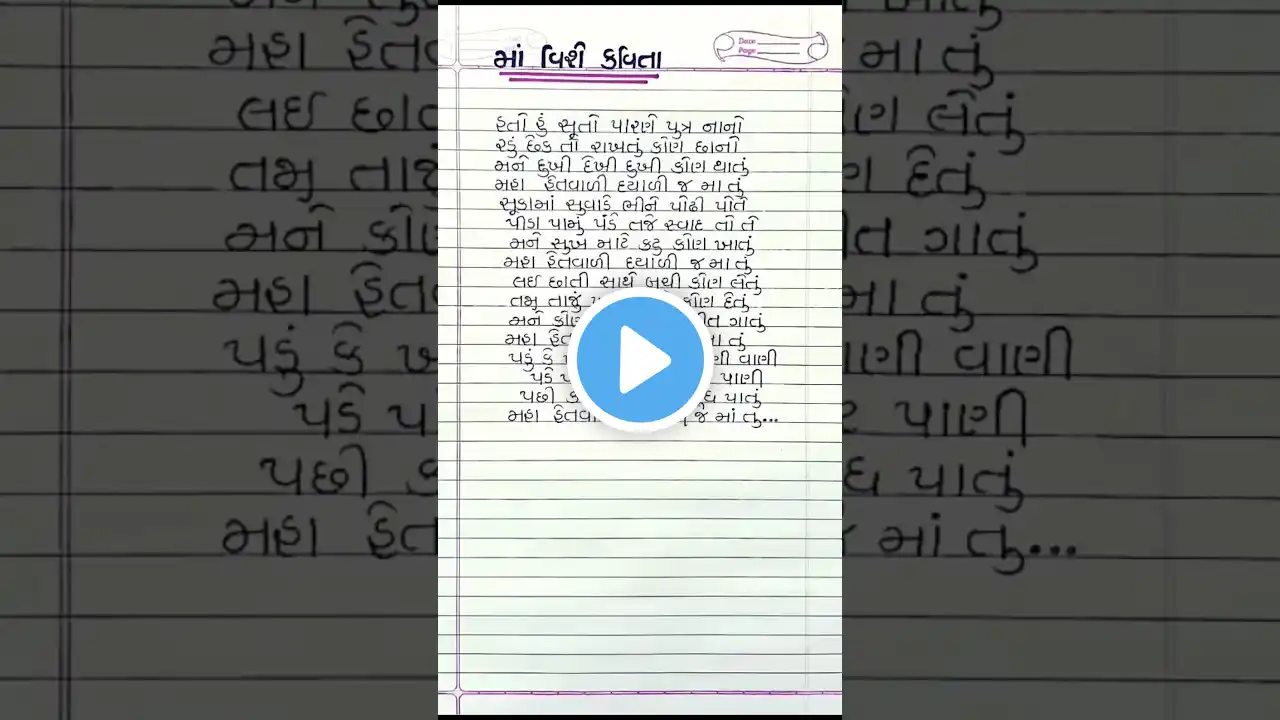 માં વિશે કવિતા
Date
Page
હતો હું સૂતો પારણે પુત્ર નાનો
રડું છેક તો રાખતું કોણ છાનો
મને દુખી દેખી દુખી કોણ થાતું
મહા હેતવાળી દયાળી જ મા તું
સૂકામાં સુવાડે ભીને પોઢી પોતે
પીડા પામું પંડે તજે સ્વાદ તો તે
મને સુખ માટે કટુ કોણ ખાતું
મહા હેતવાળી દયાળી જ મા તું
લઈ છાતી સાથે બચી કોણ લેતું
તમુ તાજું કોણ દેતું
મને ગાતું
મહા મા તું
પડું કે વાણી
પડે પાણી
પછી પાતું
મહા જે માં તુ...